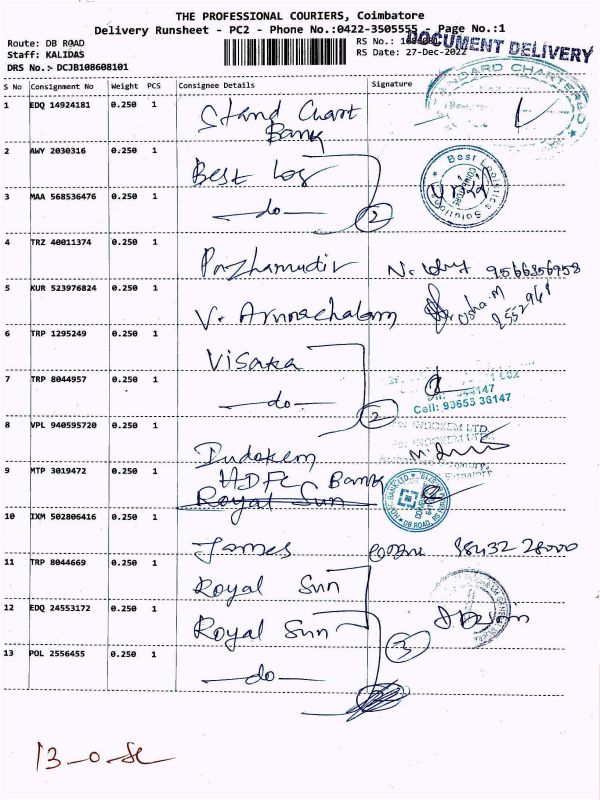 THE PROFESSIONAL COURIERS, Coimbatore
Delivery Runsheet - PC2 - Phone No.:0422-3505555 Page No.:1
DOCUMENT DELIVERY
Route: DB ROAD
Staff: KALIDAS
DRS No.:- DCJB108608101
RS No.:
RS Date: 27-Dec-2022
S No Consignment No Weight PCS Consignee Details Signature
1 EDQ 14924181 0.250 1 Stand Chart
Bank
2 AWY 2030316 0.250 1 Best Log
Best Logistics Solution
3 MAA 568536476 0.250 1 —do— 2
4 TRZ 40011374 0.250 1 Pazhamudir 9566356958
5 KUR 523976824 0.250 1 V. Arunachalam Usha.M
2552961
6 TRP 1295249 0.250 1 Visaka
7 TRP 8044957 0.250 1 —do— 2
Cell: 93655 36147
8 VPL 940595720 0.250 1 Indokem
For INDOKEM LTD.
9 MTP 3019472 0.250 1 HDFC Bank
Royal Sun
10 IXM 502806416 0.250 1 James 98432 28000
11 TRP 8044669 0.250 1 Royal Sun
12 EDQ 24553172 0.250 1 Royal Sun 3
13 POL 2556455 0.250 1 —do—